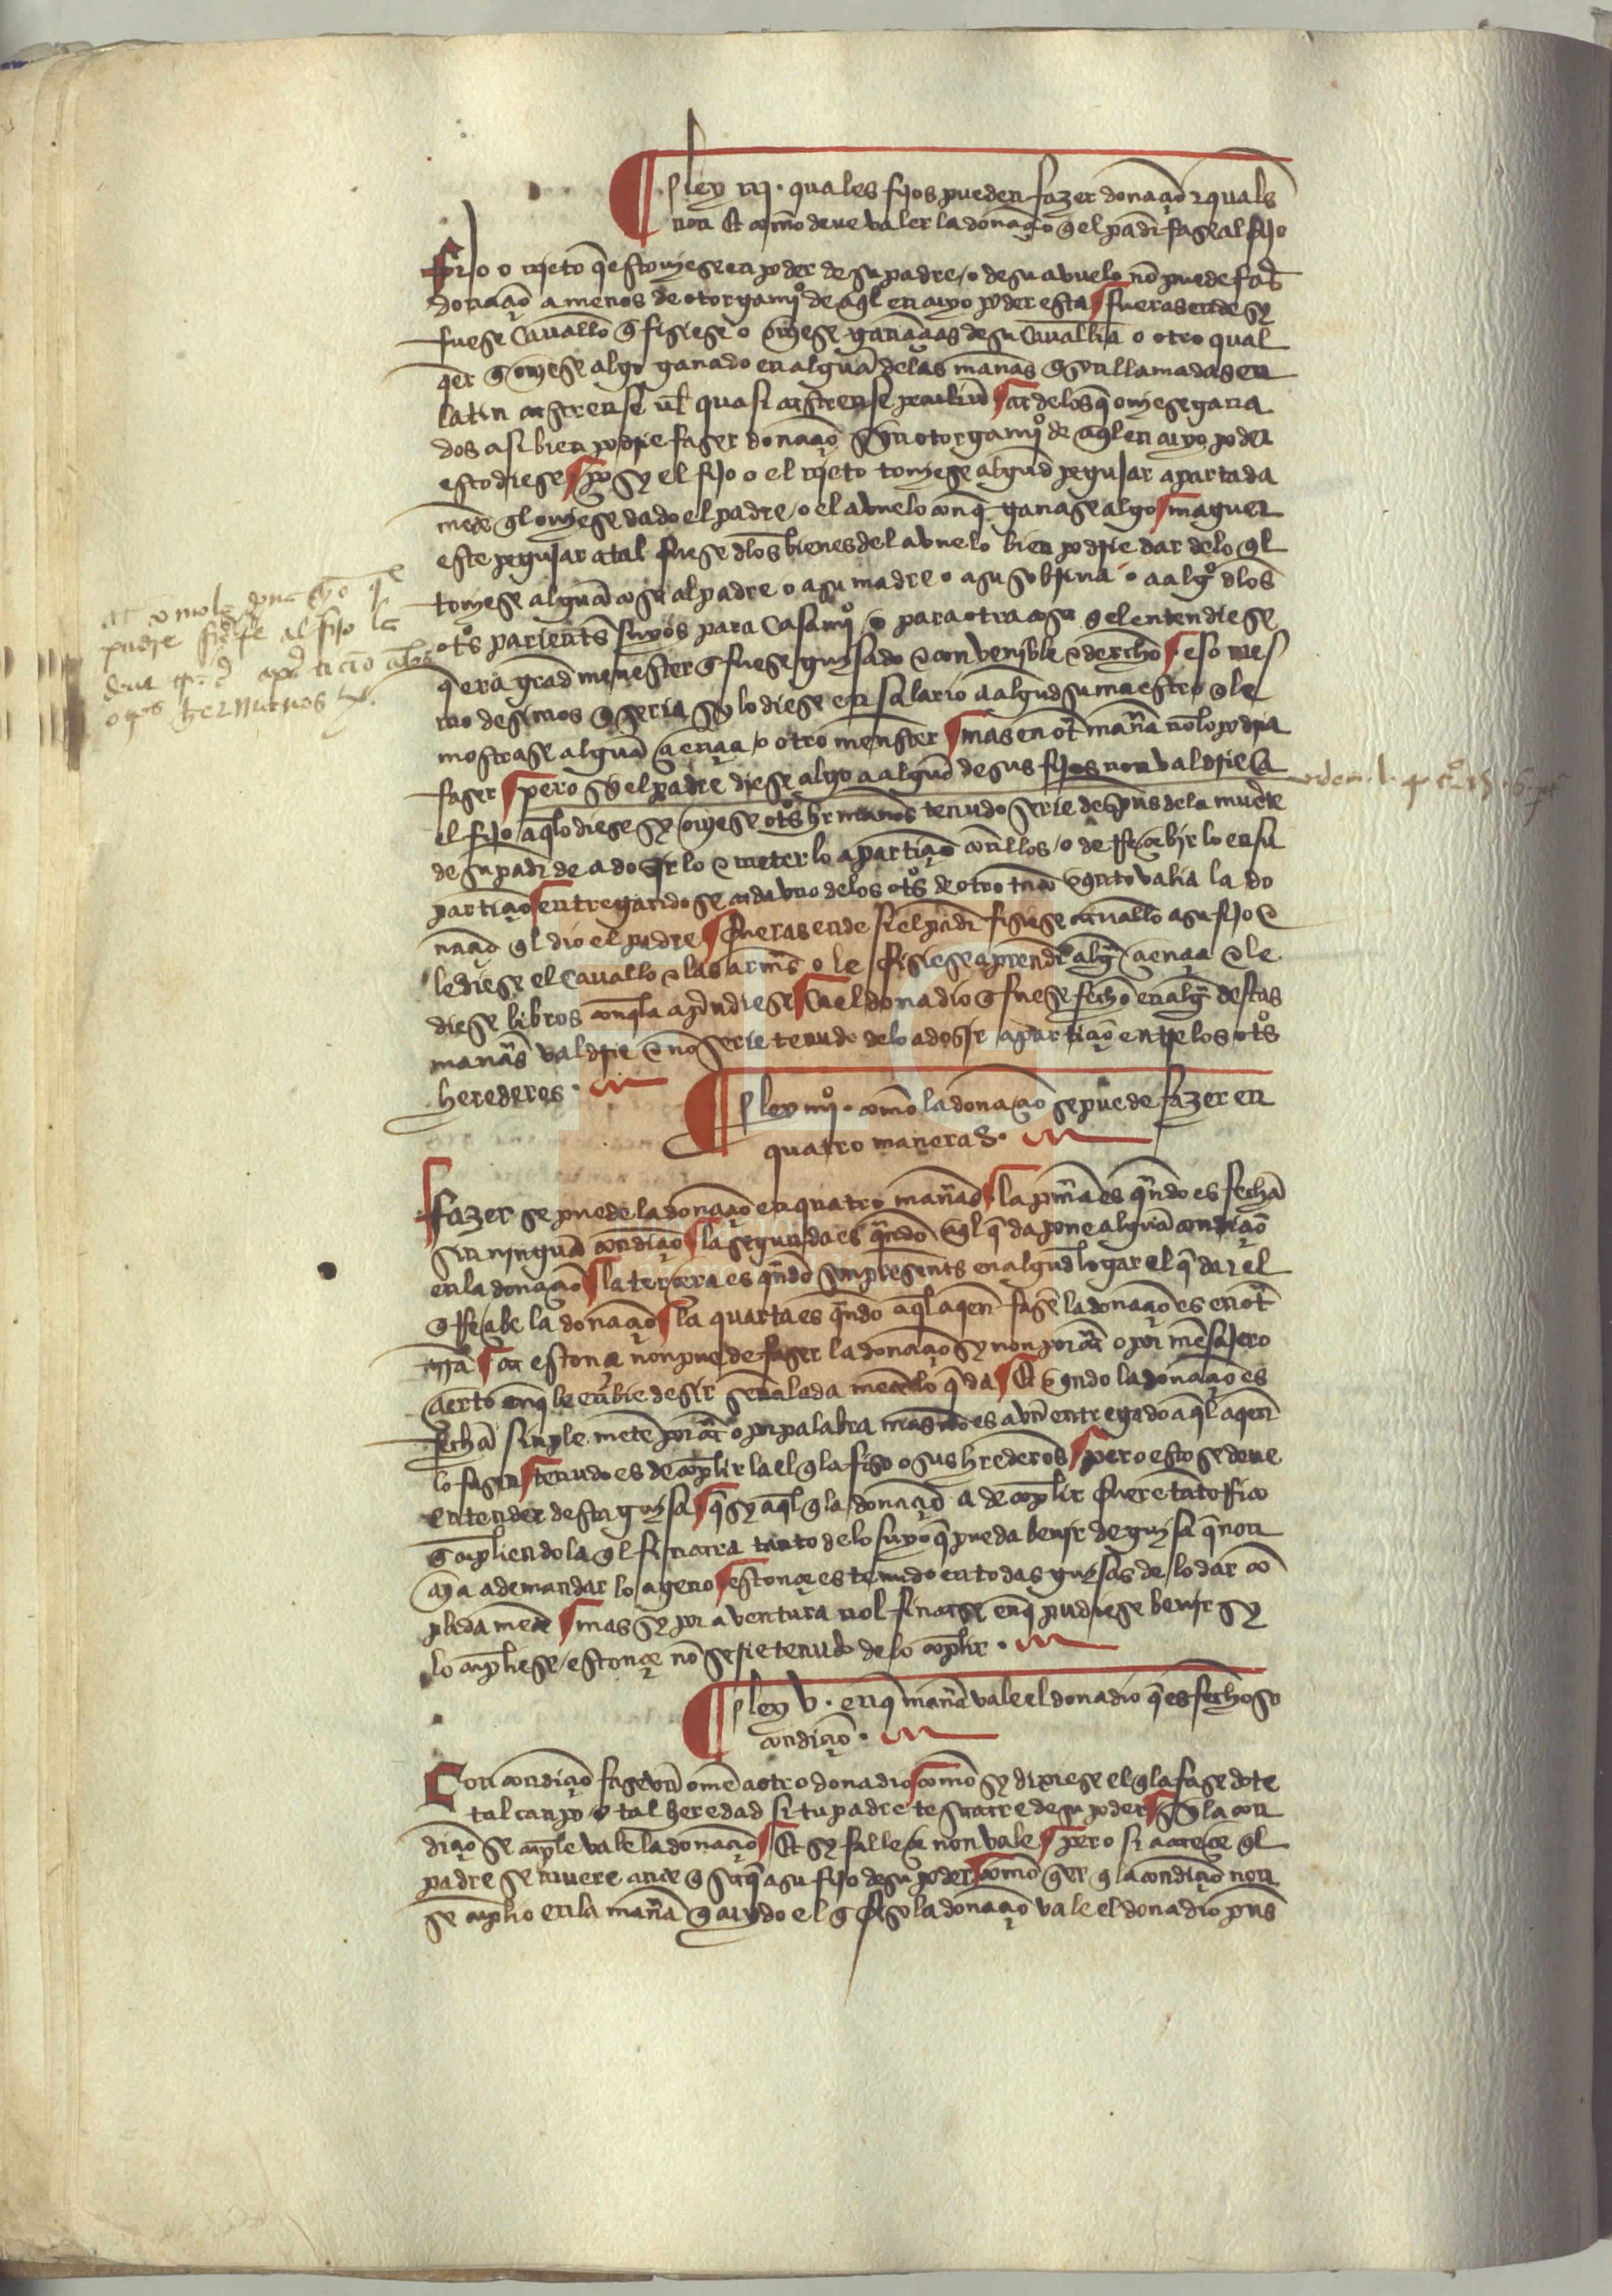 ley iij · quales fijos pueden fazer donaçiõ ⁊ quales
non Et cõmo deue valer la donaçiõ q̃ el padr̃ faze al fijo
Fijo o njeto q̃ estoujese en poder de su padre / o de su avuelo nõ puede faz̃
donaçiõ a menos de otorgamjº de aq̃l en cuyo poder esta fueras ende sy
fuese Cauallo q̃ fisiese o oujese ganãçias de su Caualłia o otro qual
q̃er q̃ oujese algo ganado en algua᷉ delas man̄as q̃ son llamadas en
latin castrense vł quasi castrense peculiũ ca delos q̃ oujese gana
dos asi bien podrie faser donaçiõ syn otorgamjº de aq̃l en cuyo poder
estodiese po sy el fijo o el njeto toujese algud pegujar apartada
mẽte q̃l oujese dado el padre / o el avuelo conq̃ ganase algo maguer
este pegujar atal fuese dlos bienes del avuelo bien podrie dar delo q̃l
toujese algua᷉ cosa al padre o a su madre o a su sobrina o a algº dlos
otºs pariẽts suyos para Casamjº o para otra cosa q̃ el entendiese
q̃ era grãd menester q̃ fuese guisado ⁊ convenjble ⁊ dercho eso mes
mo desimos q̃ seria sy lo diese en salario a algud su maestro q̃ le
mostrase algua᷉ çiençia / o otro menster mas en ot̃ man̄a nõ lo podria
faser pero sy el padre diese algo a algud de sus fijos non valdrie Ca
el fijo / a q̃ lo diese sy oujese otºs hrmanos tenudo serie despues dela muẽrte
de su padr̃ de adosirlo ⁊ meter lo a partiçiõ con ellos / o de rresçebjr lo en su
partiçiõ entregandose cada vno delos otºs de otro tãto q̃nto valia la do
naçiõ q̃l dio el padre fueras ende si el padr̃ fisiese cauallo a su fijo ⁊
le diese el Cauallo ⁊ las arm̃s o le fisiese aprender alg̃ çiençia ⁊ le
diese libros conq̃ la aprendiese Ca el donadio q̃ fuese fecho en alg̃ destas
man̄as valdrie ⁊ nõ serie tenudo delo adosir a partiçiõ entre los otºs
herederos ·
ley iiijº · cõmo la donaçiõ se puede fazer en
quatro maneras ·
Fazer se puede la donaçiõ en quatro man̄as la pm̃a es q̃ndo es fecha
syn ningua᷉ condiçiõ la segunda es q̃ndo aq̃l q̃ da pone algua᷉ condiçiõ
enla donaçiõ la terçera es q̃ndo son presents en algud logar el q̃ da ⁊ el
q̃ rresçibe la donaçiõ la quarta es q̃ndo aq̃l a q̃en fasẽ la donaçiõ es en ot̃
trr̃a ca estonçe non puede faser la donaçiõ sy non por cart̃ o por mẽsajero
çierto conq̃ le enbie desir señalada mẽte lo q̃ da Et q̃ndo la donaçiõ es
fecha sinple mẽte por cart̃ o por palabra mas nõ es avn entregado aq̃l a q̃en
lo fasen tenudo es de conplir la el q̃ la fiso o sus hrederos pero esto se deue
entender desta guisa q̃ sy aq̃l q̃ la donaçiõ a de conplir fuere tãto rrico
q̃ cunpliendola q̃l fincara tanto delo suyo q̃ pueda beujr de guisa q̃ non
aya a demandar lo ageno estonçe es tenudo en todas guisas de lo dar cõ
plida mẽte mas sy por aventura nol fincase enq̃ pudiese beujr sy
lo cunpliese / estonçe nõ serie tenudo de lo conplir ·
ley v · en q̃ man̄a vale el donadio q̃ es fecho so
condiçiõ ·
Con condiçiõ fase vn omẽ a otro donadio cõmo sy dixiese el q̃ la fase dote
tal canpo o tal heredad si tu padre te sacare de su poder Sy la con
diçiõ se cunple vale la donaçiõ Et sy falleçe non vale pero si acaeçe q̃l
padre se muere ante q̃ saq̃ a su fijo de su poder cõmo q̃er q̃ la condiçiõ non
se cunplio enla man̄a q̃ cuydo el q̃ fiso la donaçiõ vale el donadio pues